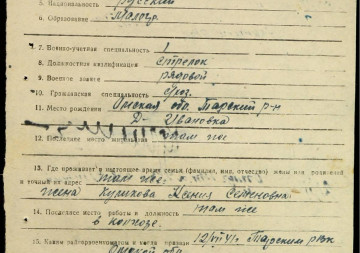 5. Национальность русский
6. Образование Малогр.
7. Военно-учетная специальность 1
8. Должностная квалификация стрелок
9. Военное звание рядовой
10. Гражданская специальность
11. Место рождения Омская обл. Тарский р-н
д- Ивановка
12. Последнее место жительства там же
13. Где проживает в настоящее время семья (фамилия, имя, отчество) жены или родителей
и точный их адрес там же
жена Куликова Ксения Семеновна
14. Последнее место работы и должность там же
в колхозе.
15. Каким райвоенкоматом и когда призван 12/VII 41г. Тарским рвк
Омской обл.